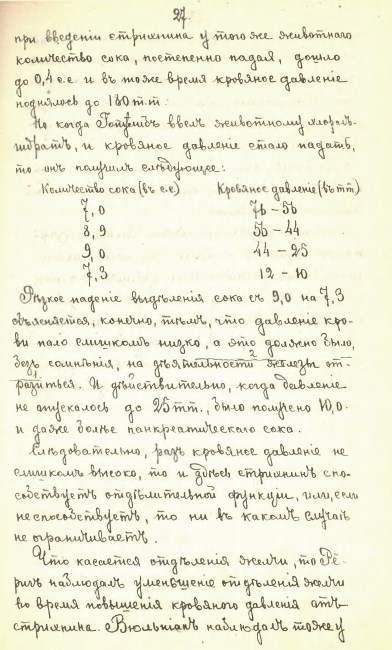 27.
при введеніи стрихнина у того же животнаго
количество сока, постепенно падая, дошло
до 0,4 с.с и въ тоже время кровяное давленіе
поднялось до 180 m.m.
Но когда Готтлибъ ввелъ животному хлорал-
гидратъ, и кровяное давленіе стало падать,
то онъ получилъ слѣдующее:
Количество сока (въ с.с) Кровяное давленіе (въ m.m)
7,0 76 – 56
8,9 56 – 44
9,0 44 – 25
7,3 12 – 10
Рѣзкое паденіе выдѣленія сока съ 9,0 на 7,3
объясняется, конечно, тѣмъ, что давленіе кро-
ви пало слишкомъ низко, а это должно было,
безъ сомнѣнія, на дѣятельности железы от-
разиться. И дѣйствительно, когда давленіе
не опускалось до 25 m.m., было получено 10,0
и даже болѣе панкреатическаго сока.
Слѣдовательно, разъ кровяное давленіе не
слишкомъ высоко, то и здѣсь стрихнинъ спо-
собствуетъ отдѣлительной функціи, или, если
не способствуетъ, то ни въ какомъ случаѣ
не ограничиваетъ.
Что касается отдѣленія желчи, то Рё-
рихъ наблюдалъ уменьшеніе отдѣленія желчи
во время повышенія кровяного давленія отъ
стрихнина. Вюльпіанъ наблюдалъ тоже у